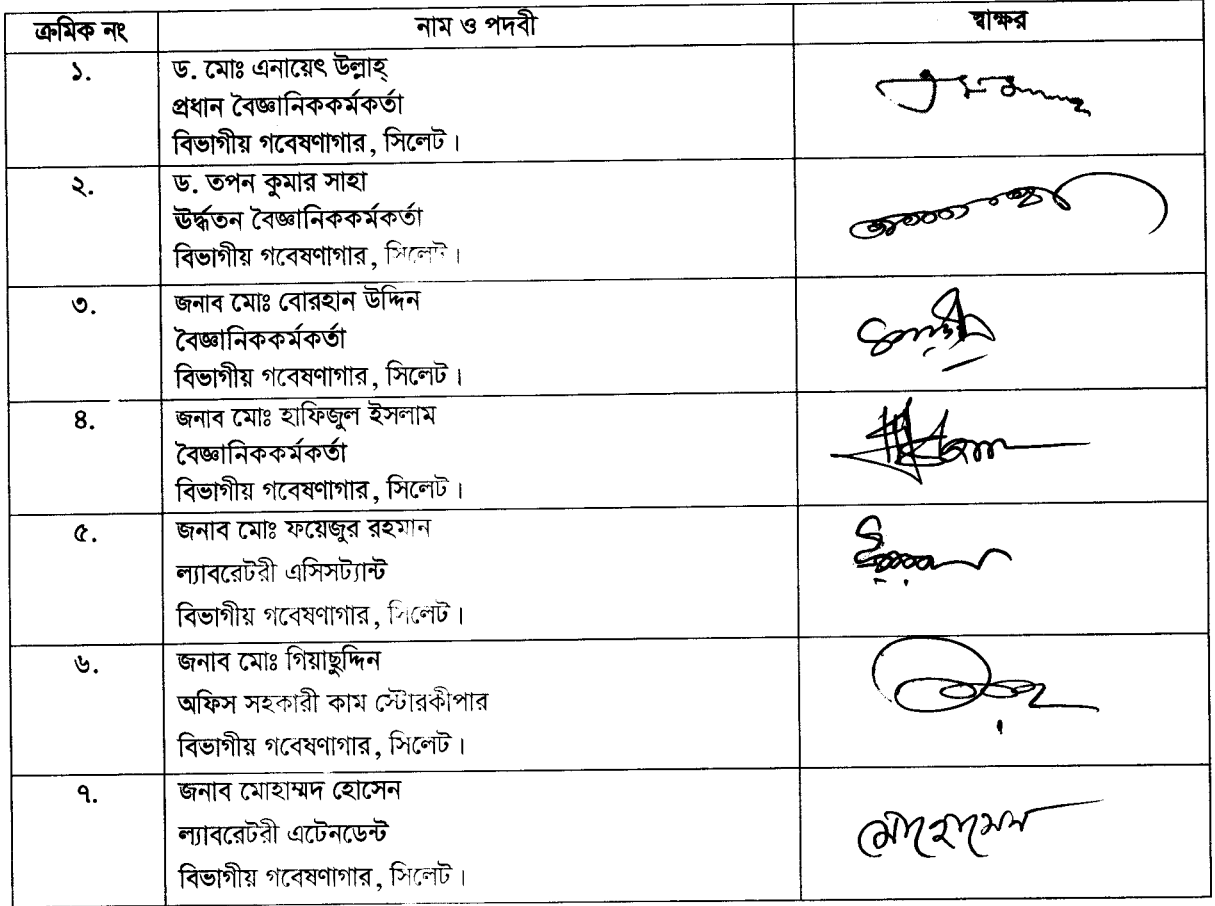 ক্রমিক নং নাম ও পদবী স্বাক্ষর
১. ড. মোঃ এনায়েৎ উল্লাহ্
প্রধান বৈজ্ঞানিককর্মকর্তা
বিভাগীয় গবেষণাগার, সিলেট।
২. ড. তপন কুমার সাহা
ঊর্দ্ধতন বৈজ্ঞানিককর্মকর্তা
বিভাগীয় গবেষণাগার, সিলেট।
৩. জনাব মোঃ বোরহান উদ্দিন
বৈজ্ঞানিককর্মকর্তা
বিভাগীয় গবেষণাগার, সিলেট।
৪. জনাব মোঃ হাফিজুল ইসলাম
বৈজ্ঞানিককর্মকর্তা
বিভাগীয় গবেষণাগার, সিলেট।
৫. জনাব মোঃ ফয়েজুর রহমান
ল্যাবরেটরী এসিসট্যান্ট
বিভাগীয় গবেষণাগার, সিলেট।
৬. জনাব মোঃ গিয়াছুদ্দিন
অফিস সহকারী কাম স্টোরকীপার
বিভাগীয় গবেষণাগার, সিলেট।
৭. জনাব মোহাম্মদ হোসেন
ল্যাবরেটরী এটেনডেন্ট
বিভাগীয় গবেষণাগার, সিলেট।